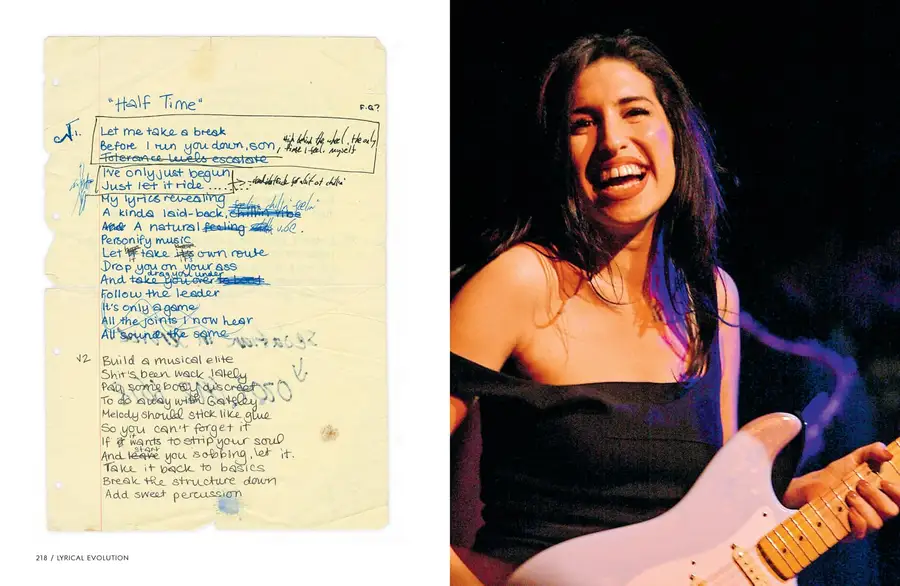 "Half Time"
F.Q?
V1.
Let me take a break
Before I run you down, son,
behind the wheel, the only
time I feel myself
Tolerance levels escalate
I've only just begun
Just let it ride .....
My lyrics revealing
A kinda laid-back, chillin' vibe
And A natural feeling vibe.
Personify music
Let it take its own route
Drop you on your ass
drag you under
And take you over
Follow the leader
It's only a game
All the joints I now hear
All sound the same
V2 Build a musical elite
Shit's been wack lately
Pay somebody discreet
To do away with Gatsley
Melody should stick like glue
So you can't forget it
If it wants to strip your soul
start
And leave you sobbing, let it.
Take it back to basics
Break the structure down
Add sweet percussion
218 / LYRICAL EVOLUTION